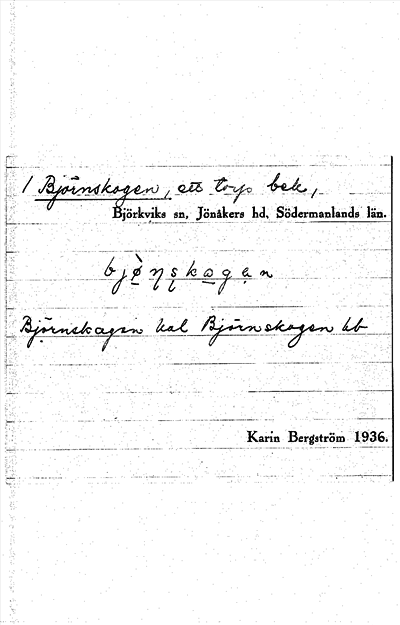 1 Björnskogen, ett torp bek,
Björkviks sn, Jönåkers hd, Södermanlands län.
Björnskagen kal Björnskogen hb
Karin Bergström 1936.